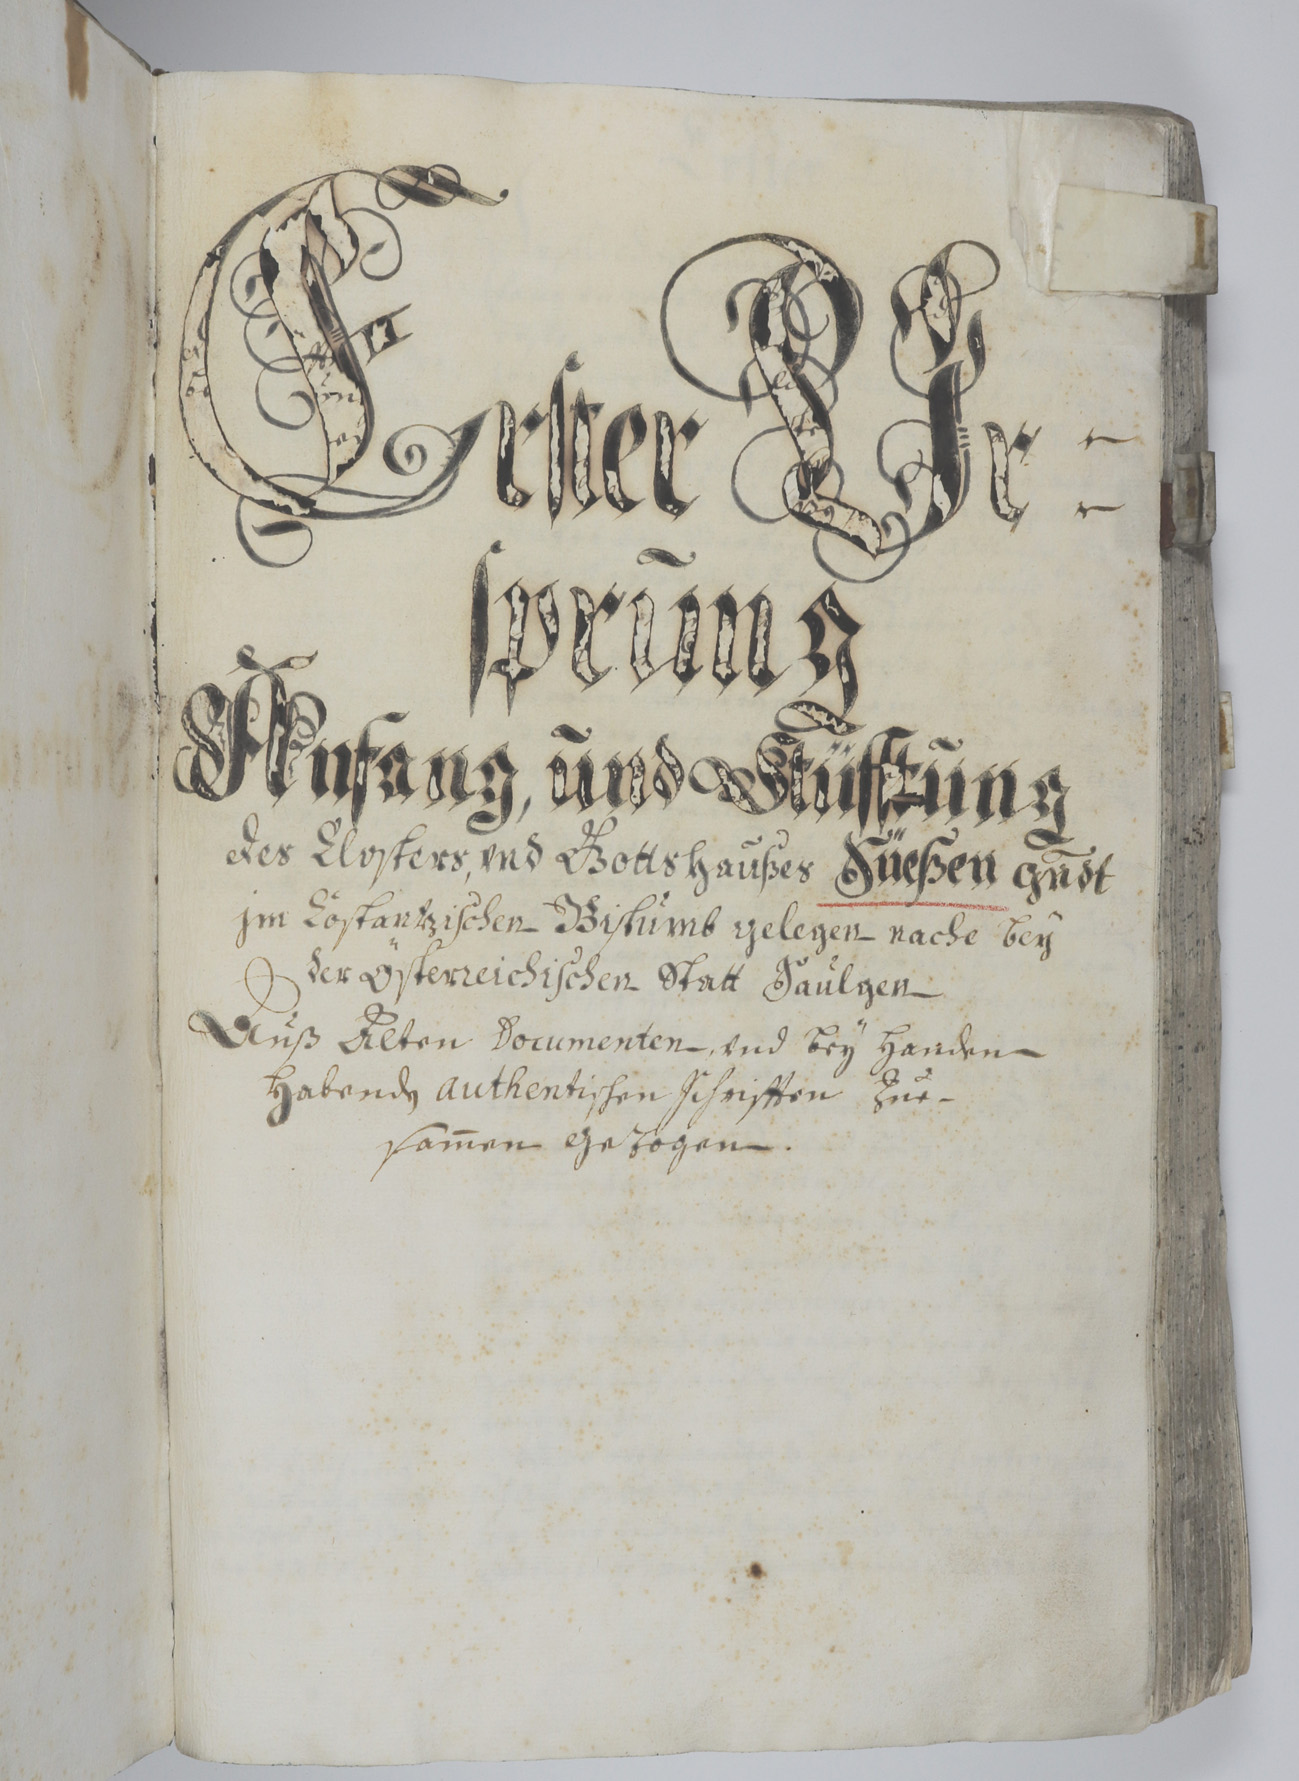 Erster Vr=
sprūng
Anfang, ūnd Stüfftūng
des Closters, vnd Gottshaußes Süeßen gūdt
jm Costantzischen Bistumb gelegen nache beÿ
der Österreichischen Statt Saulgen
Auß Alten Documenten, vnd beÿ Handen
Habende authentischen Schrifften Zue-
sam̄en gezogen.
I